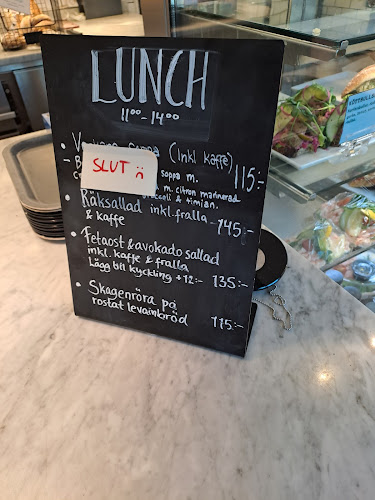 LUNCH
11⁰⁰-14⁰⁰
soppa (Inkl kaffe)
SLUT :(
soppa m. 115:-
m. citron marinerad
& timian.
• Räksallad inkl. fralla - 145:-
& kaffe
• Fetaost & avokado sallad
inkl. kaffe & fralla
Lägg till kyckling +12:- 135:-
• Skagenröra på
rostat levainbröd 115:-
KÖTTBULLAR